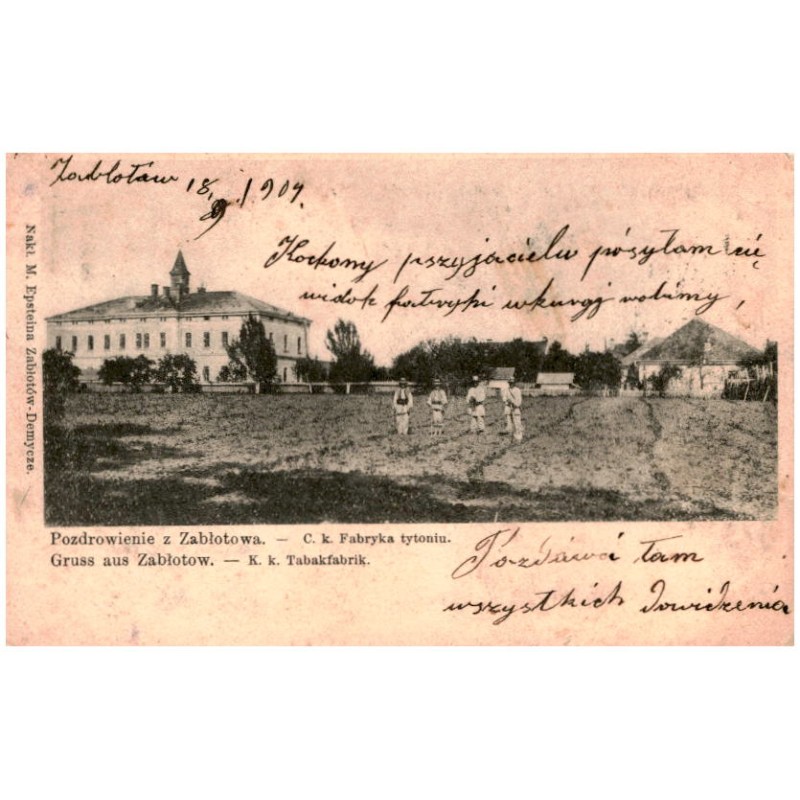 Zabłotów 18/9 1904.
Kochany pszyjacielu pósyłam cię
widok fabryki w robimy,
Nakł. M. Epsteina Zabłotów-Demycze.
Pozdrowienie z Zabłotowa. — C. k. Fabryka tytoniu.
Gruss aus Zabłotow. — K. k. Tabakfabrik.
tam
wszystkich Dowidzenia